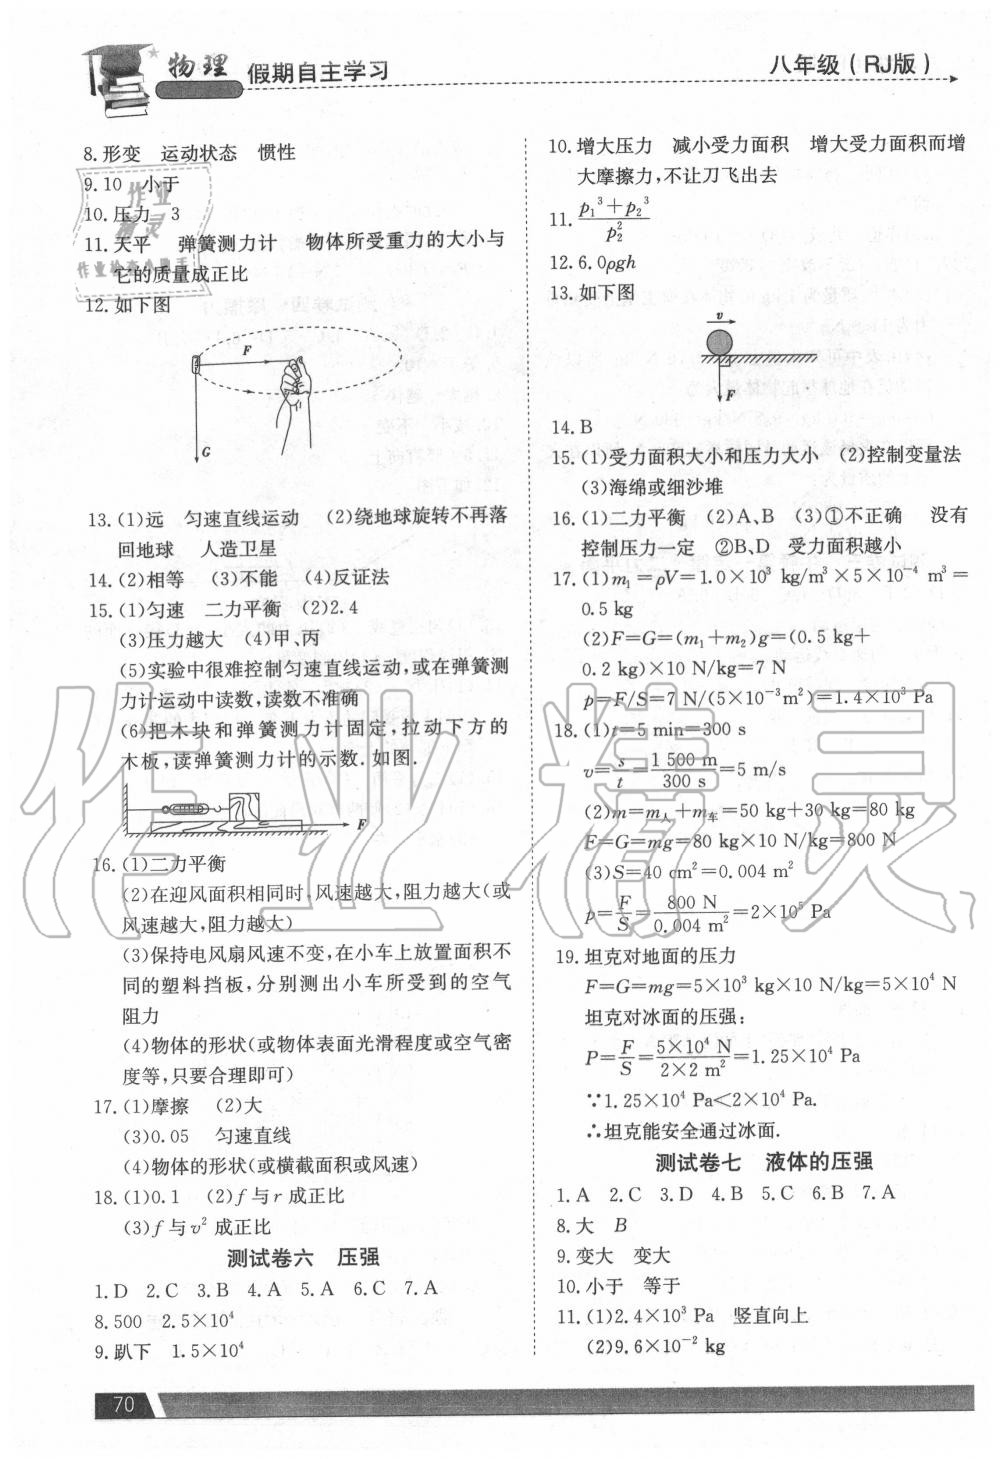 物理 假期自主学习
八年级(RJ版)
8.形变 运动状态 惯性
9.10 小于
10.压力 3
11.天平 弹簧测力计 物体所受重力的大小与
它的质量成正比
12.如下图
F
G
13.(1)远 匀速直线运动 (2)绕地球旋转不再落
回地球 人造卫星
14.(2)相等 (3)不能 (4)反证法
15.(1)匀速 二力平衡 (2)2.4
(3)压力越大 (4)甲、丙
(5)实验中很难控制匀速直线运动,或在弹簧测
力计运动中读数,读数不准确
(6)把木块和弹簧测力计固定,拉动下方的
木板,读弹簧测力计的示数.如图.
F
16.(1)二力平衡
(2)在迎风面积相同时,风速越大,阻力越大(或
风速越大,阻力越大)
(3)保持电风扇风速不变,在小车上放置面积不
同的塑料挡板,分别测出小车所受到的空气
阻力
(4)物体的形状(或物体表面光滑程度或空气密
度等,只要合理即可)
17.(1)摩擦 (2)大
(3)0.05 匀速直线
(4)物体的形状(或横截面积或风速)
18.(1)0.1 (2)f与r成正比
(3)f与v²成正比
测试卷六 压强
1.D 2.C 3.B 4.A 5.A 6.C 7.A
8.500 2.5×10⁴
9.趴下 1.5×10⁴
10.增大压力 减小受力面积 增大受力面积而增
大摩擦力,不让刀飞出去
11. (p₁³+p₂³)/p₂²
12.6.0ρgh
13.如下图
v
F
14.B
15.(1)受力面积大小和压力大小 (2)控制变量法
(3)海绵或细沙堆
16.(1)二力平衡 (2)A、B (3)①不正确 没有
控制压力一定 ②B、D 受力面积越小
17.(1)m₁=ρV=1.0×10³ kg/m³×5×10⁻⁴ m³=
0.5 kg
(2)F=G=(m₁+m₂)g=(0.5 kg+
0.2 kg)×10 N/kg=7 N
p=F/S=7 N/(5×10⁻³m²)=1.4×10³ Pa
18.(1)t=5 min=300 s
v=s/t=1 500 m/300 s=5 m/s
(2)m=m人+m车=50 kg+30 kg=80 kg
F=G=mg=80 kg×10 N/kg=800 N
(3)S=40 cm²=0.004 m²
p=F/S=800 N/0.004 m²=2×10⁵ Pa
19.坦克对地面的压力
F=G=mg=5×10³ kg×10 N/kg=5×10⁴ N
坦克对冰面的压强:
P=F/S=5×10⁴ N/2×2 m²=1.25×10⁴ Pa
∵1.25×10⁴ Pa<2×10⁴ Pa.
∴坦克能安全通过冰面.
测试卷七 液体的压强
1.A 2.C 3.D 4.B 5.C 6.B 7.A
8.大 B
9.变大 变大
10.小于 等于
11.(1)2.4×10³ Pa 竖直向上
(2)9.6×10⁻² kg
70
作业精灵
作业
精灵
作业检查小助手